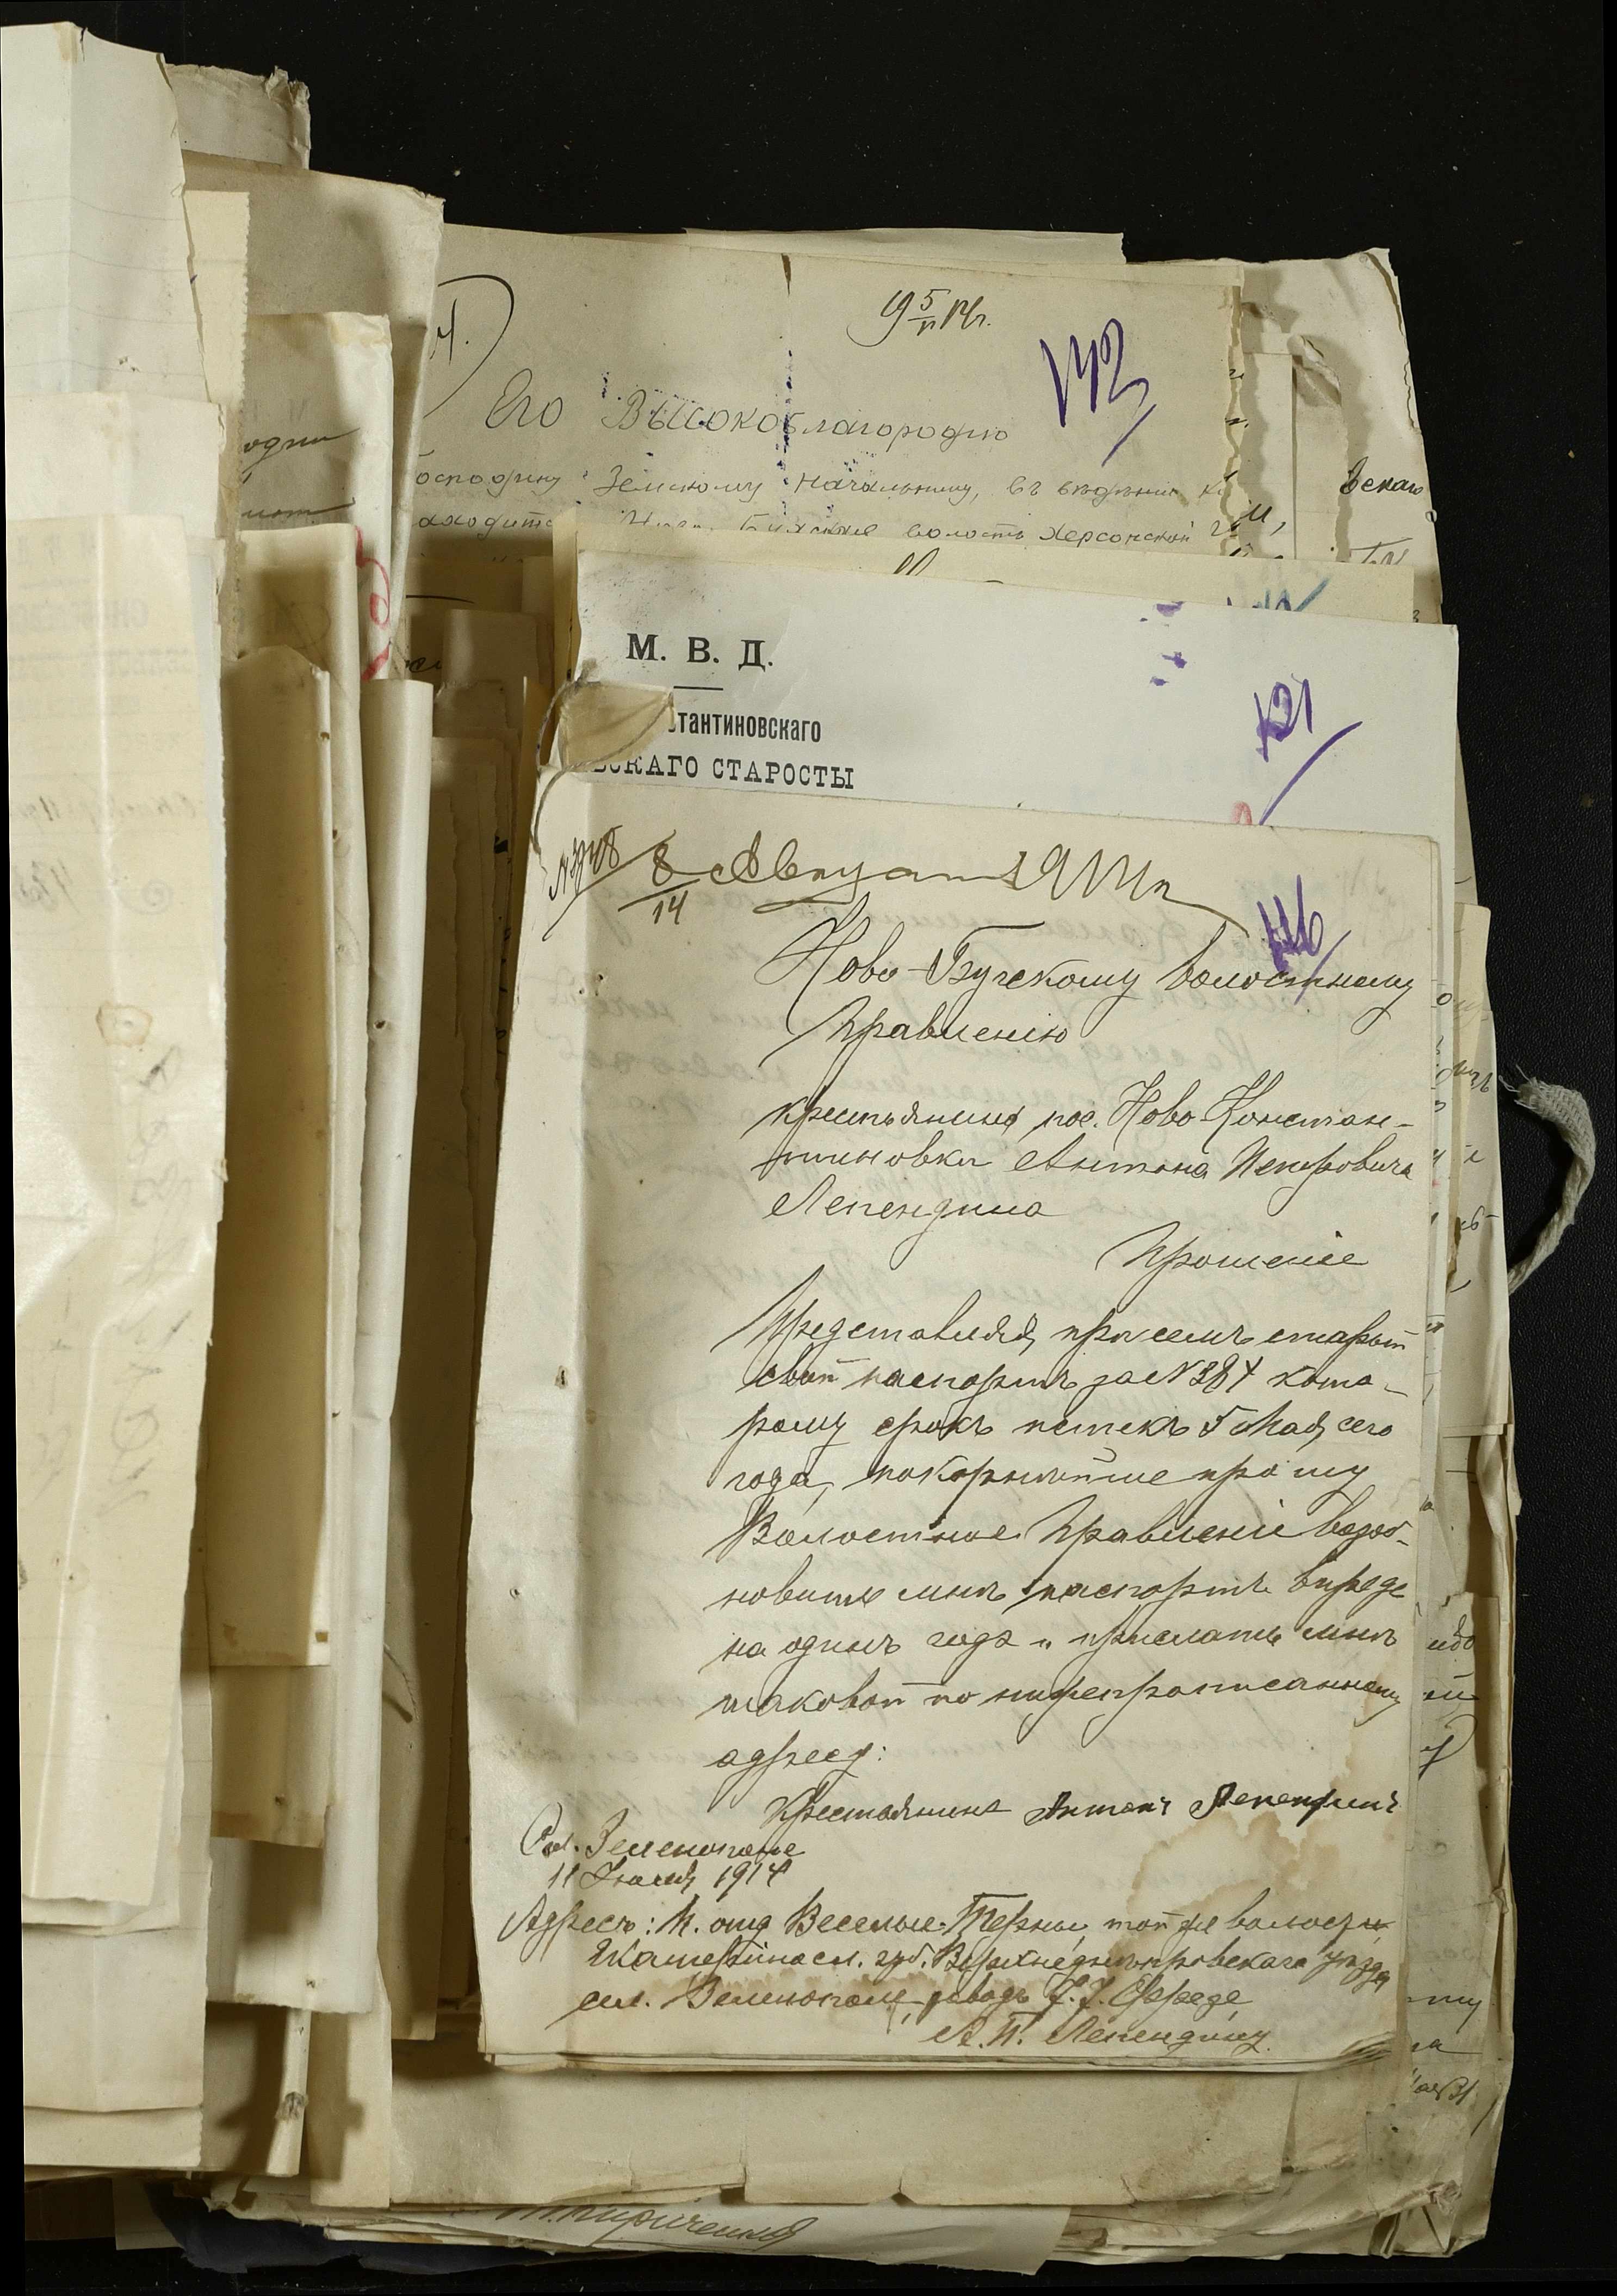 Его Высокоблагородію
Господину Земскому Начальнику, въ вѣдѣніи
волость Херсонской
142
М. В. Д.
стантиновскаго
ЬСКАГО СТАРОСТЫ
121
8 Августа 1914 г
14
Ново-Бугскому Волостному
Правленію
крестьянина пос. Ново Констан-
тиновки Антона Петровича
Лепендина
Прошеніе
Представляя при семъ старый
свой паспортъ за № 384 кото-
рому срокъ истекъ 5 Мая, сего
года, покорнѣйше прошу
Волостное Правленіе возоб-
новить мнѣ паспортъ впредь
на одинъ годъ и прислать мнѣ
таковой по нижепрописанному
адресу:
Крестьянинъ Антонъ Лепендинъ
Сел. Зеленополе
11 Іюля 1914
Адресъ: П. отд Веселые-Терны, той же волости
Екатериносл. губ. Верхнеднѣпровскаго уѣзда
сел. Зеленополе, заводъ
А. П. Лепендину.